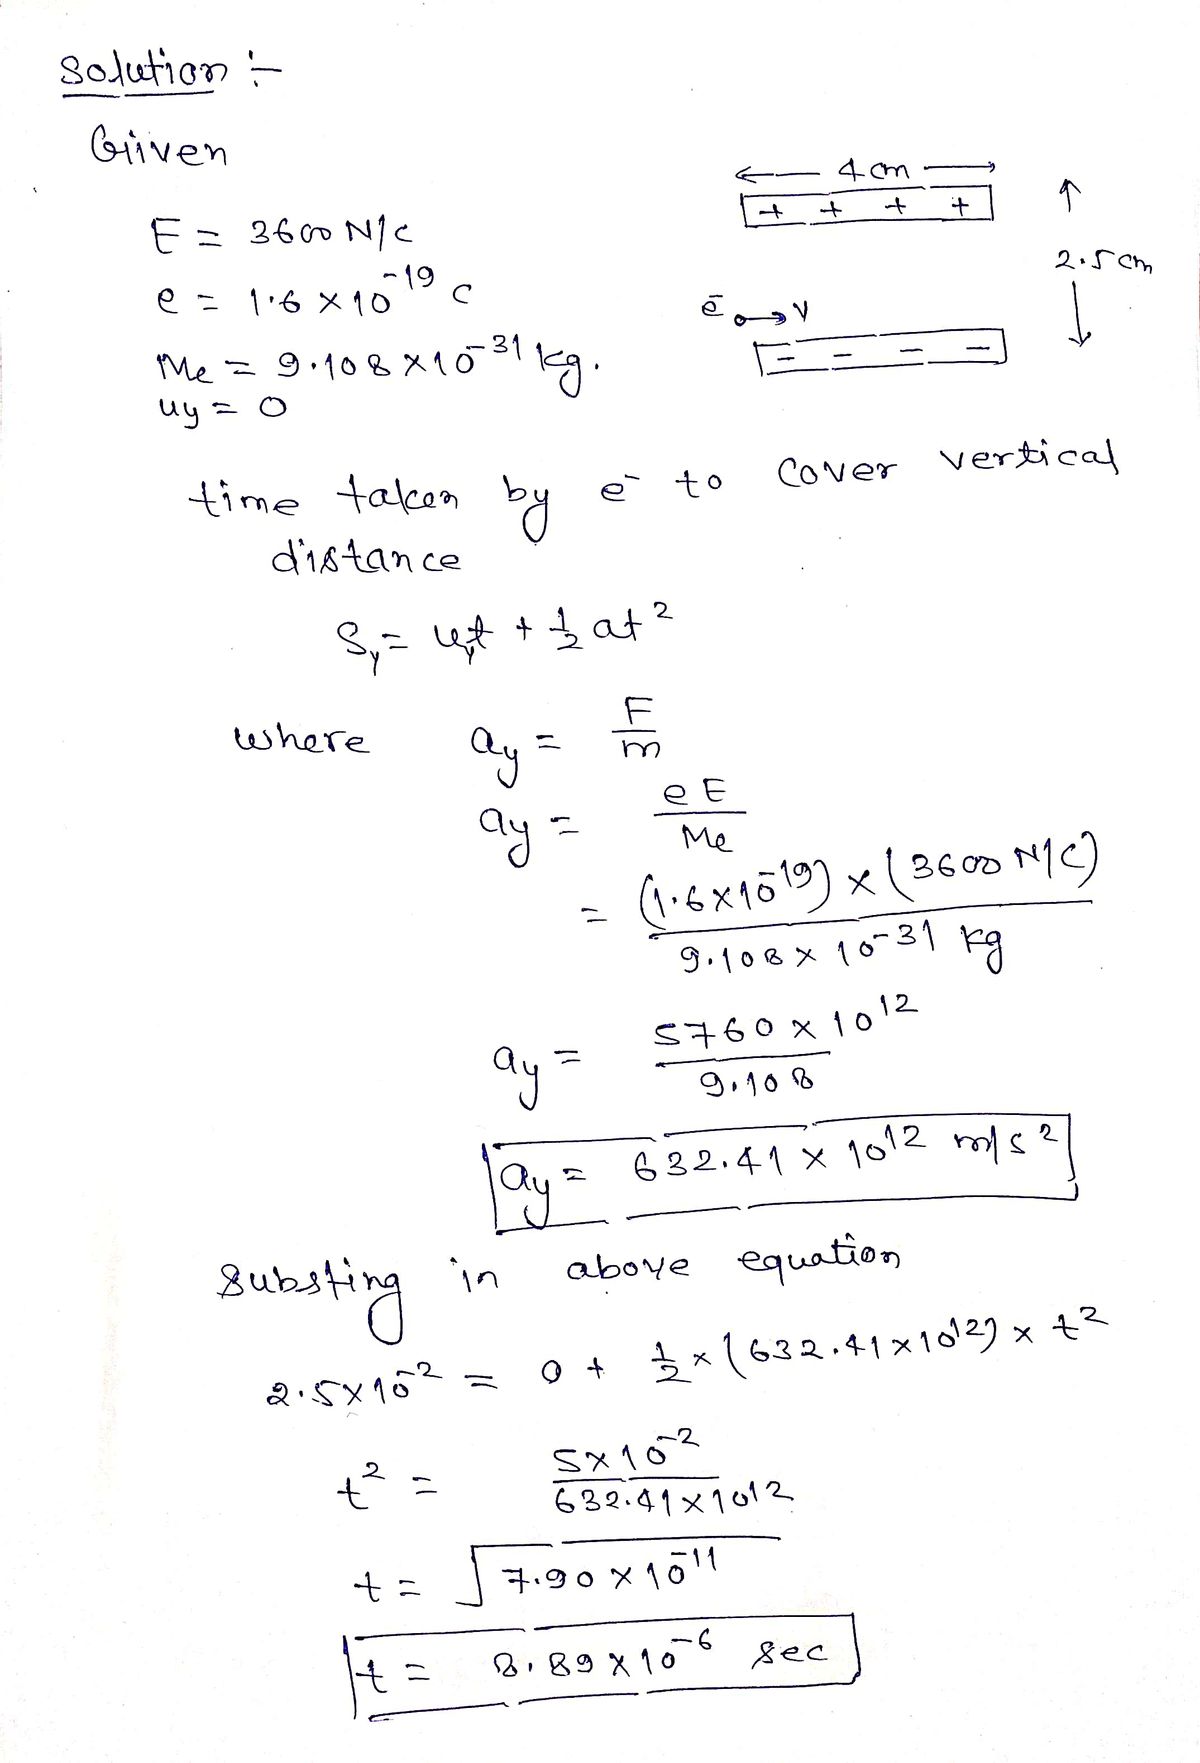 Solution :-
Given
← 4 cm →
+ + + +
↑
E = 3600 N/C
2.5 cm
e = 1.6 × 10⁻¹⁹ C
e⁻ → V
↓
Me = 9.108 × 10⁻³¹ kg.
- - - -
uy = 0
time taken by e⁻ to cover vertical
distance
Sy = uyt + ½ at²
where ay = F/m
ay = eE/Me
= (1.6×10⁻¹⁹) × (3600 N/C) / 9.108 × 10⁻³¹ kg
ay = 5760 × 10¹² / 9.108
ay = 632.41 × 10¹² m/s²
Substing in above equation
2.5×10⁻² = 0 + ½ × (632.41×10¹²) × t²
t² = 5×10⁻² / 632.41×10¹²
t = √7.90 × 10⁻¹¹
t = 8.89 × 10⁻⁶ sec